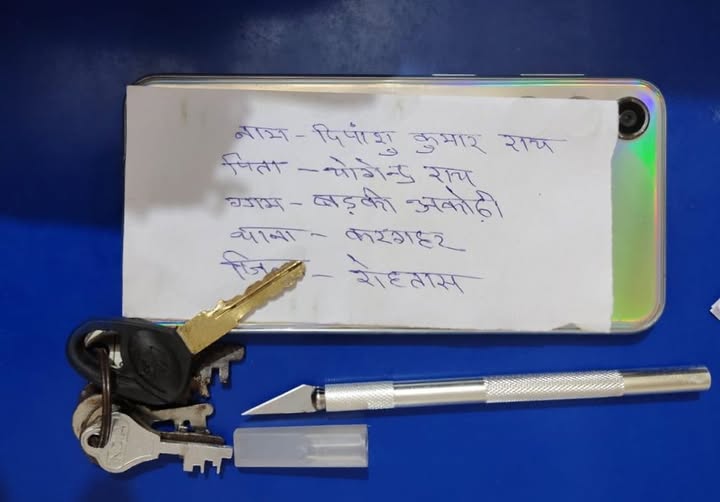 नाम - दिपांशु कुमार राय
पिता - योगेन्द्र राय
ग्राम - बड़की अकोढ़ी
थाना - करगहर
जि - रोहतास